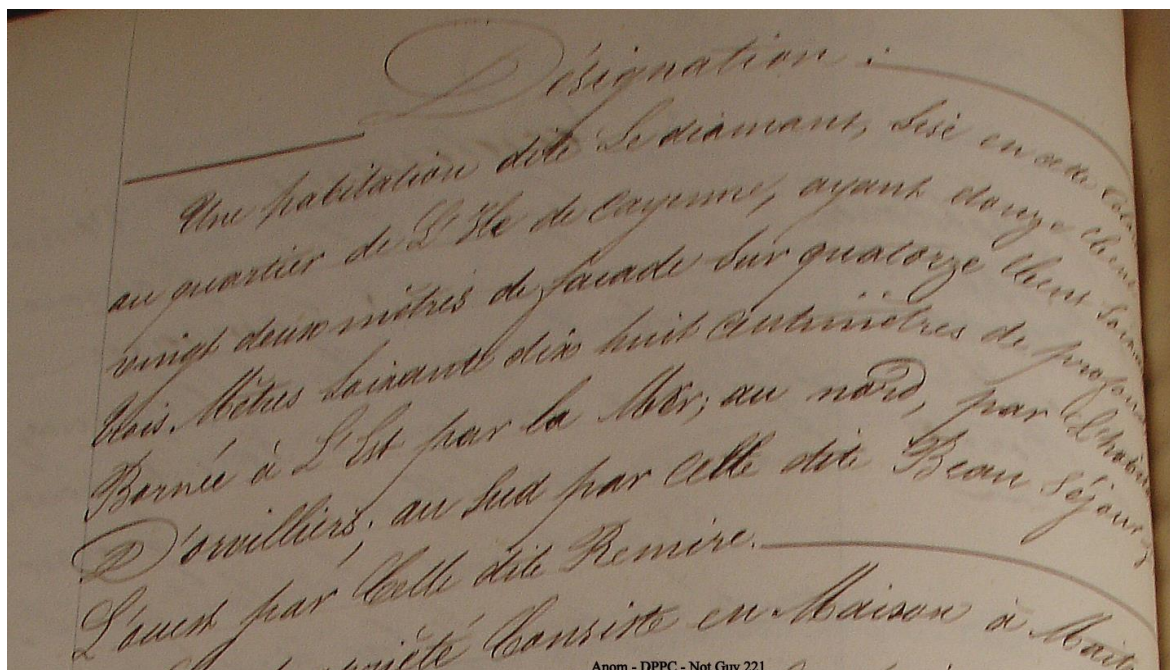 Désignation :
Une habitation dite Le diamant, Sise en cette Colo
au quartier de L'Ile de Cayenne, ayant douze Cent
vingt deux mètres de façade Sur quatorze Cent Soixan
trois Mètres Soixante dix huit Centimètres de profon
Bornée à L'Est par la Mer; au nord, par L'habi
D'orvilliers; au Sud par Celle dite Beau Séjour,
L'ouest par Celle dite Remire.
Consiste en Maison à Mait
Anom - DPPC - Not Guy 221